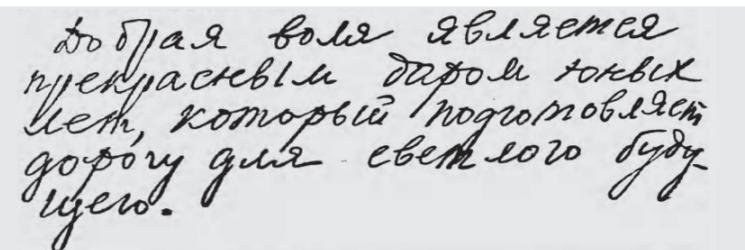 Добрая воля является
прекрасным даром юных
лет, который подготовляет
дорогу для светлого буду-
щего.